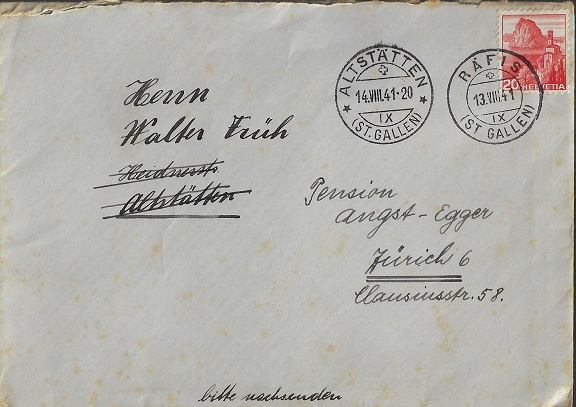 Herrn
Walter Früh
Altstätten
Pension
Angst-Egger
Zürich 6
Clausiusstr. 58.
bitte nachsenden
ALTSTÄTTEN
14.VIII.41-20
IX
(ST.GALLEN)
RÄFIS
13.VIII.41
IX
(ST GALLEN)
20 HELVETIA